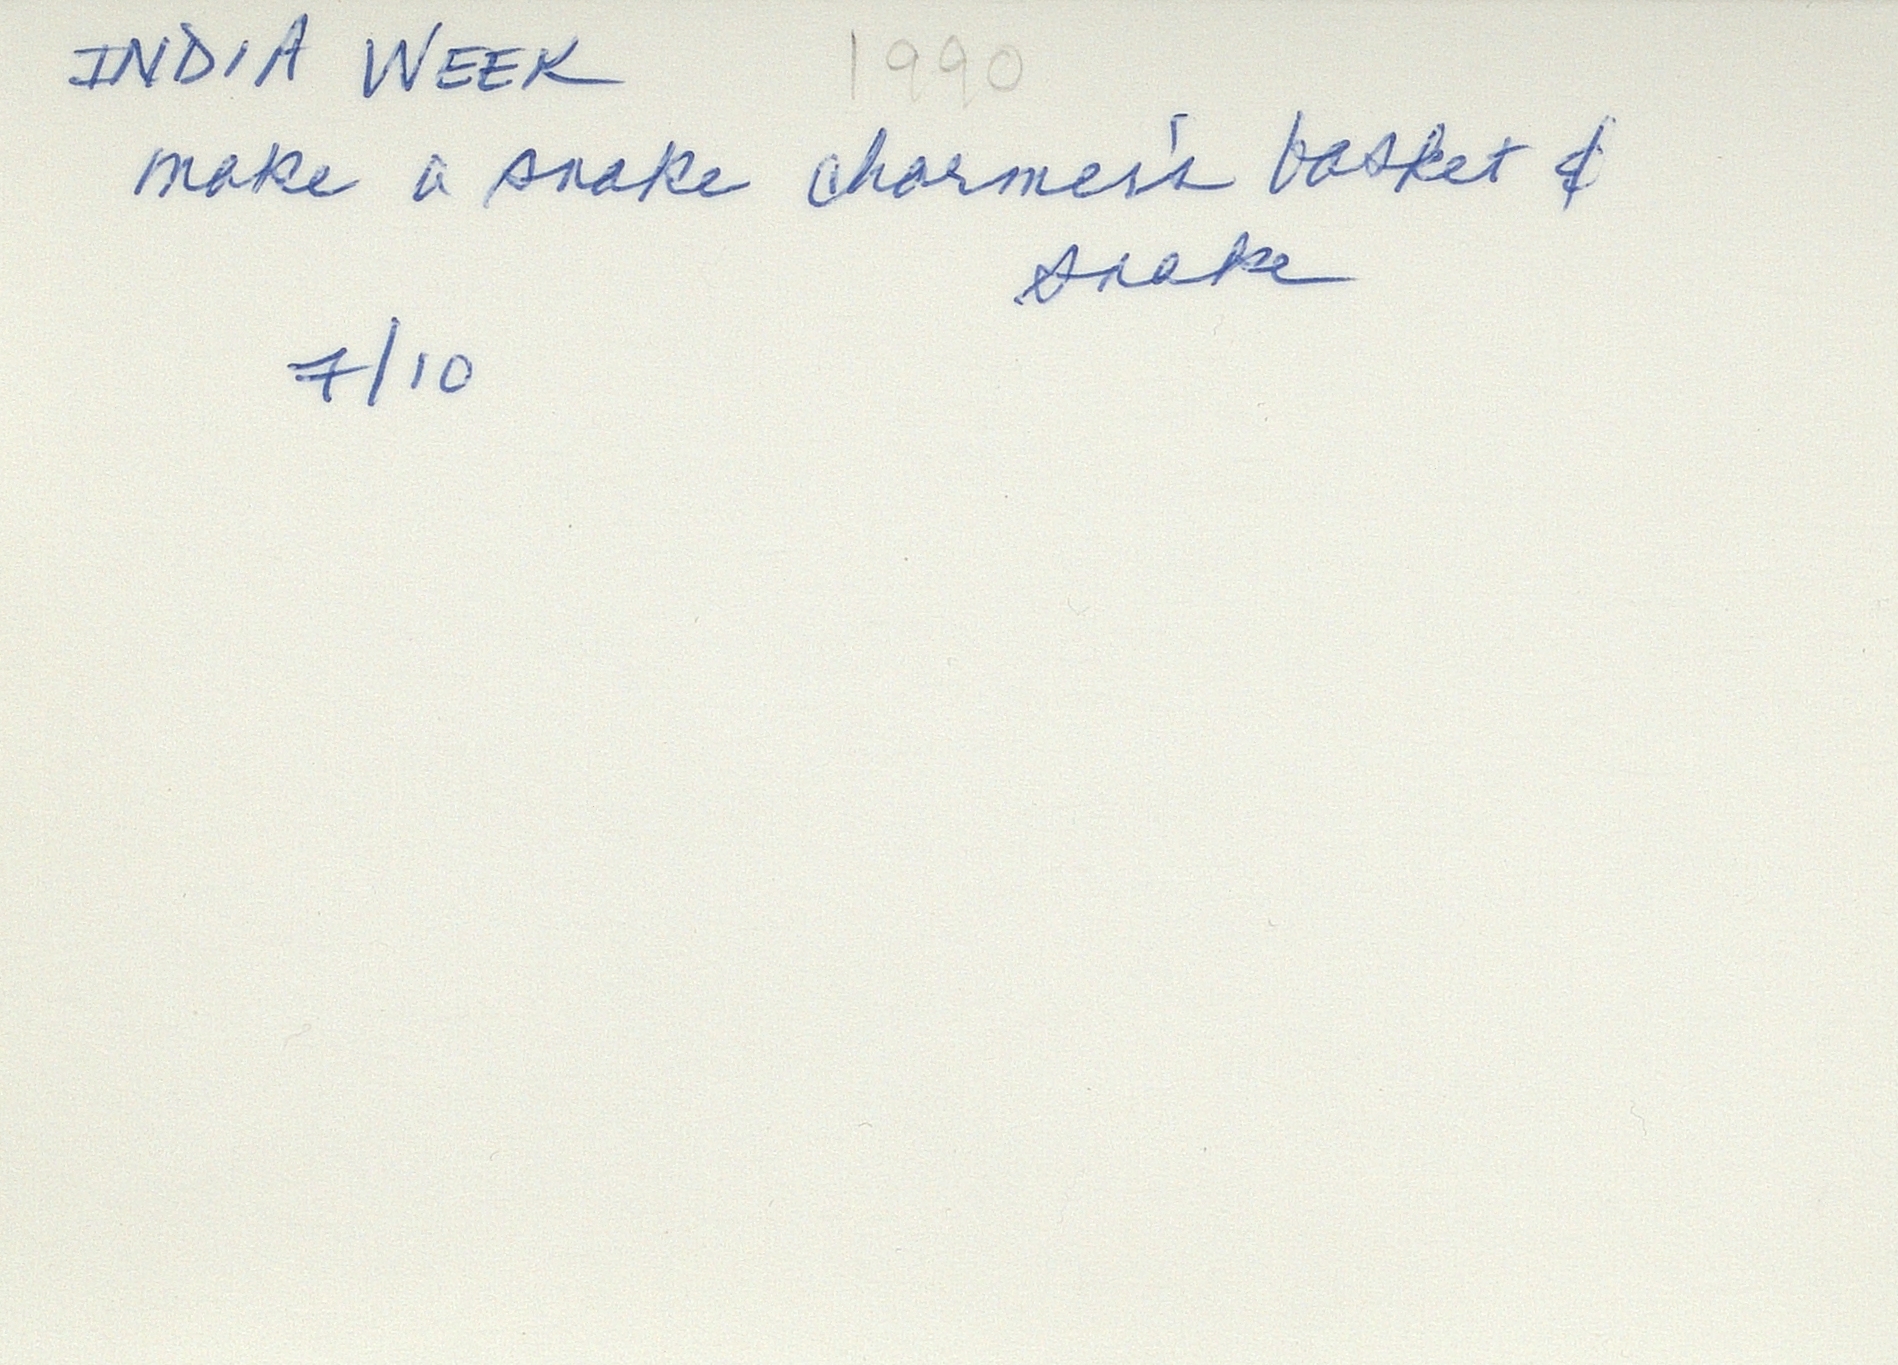 INDIA WEEK 1990
make a snake charmer's basket &
snake
7/10